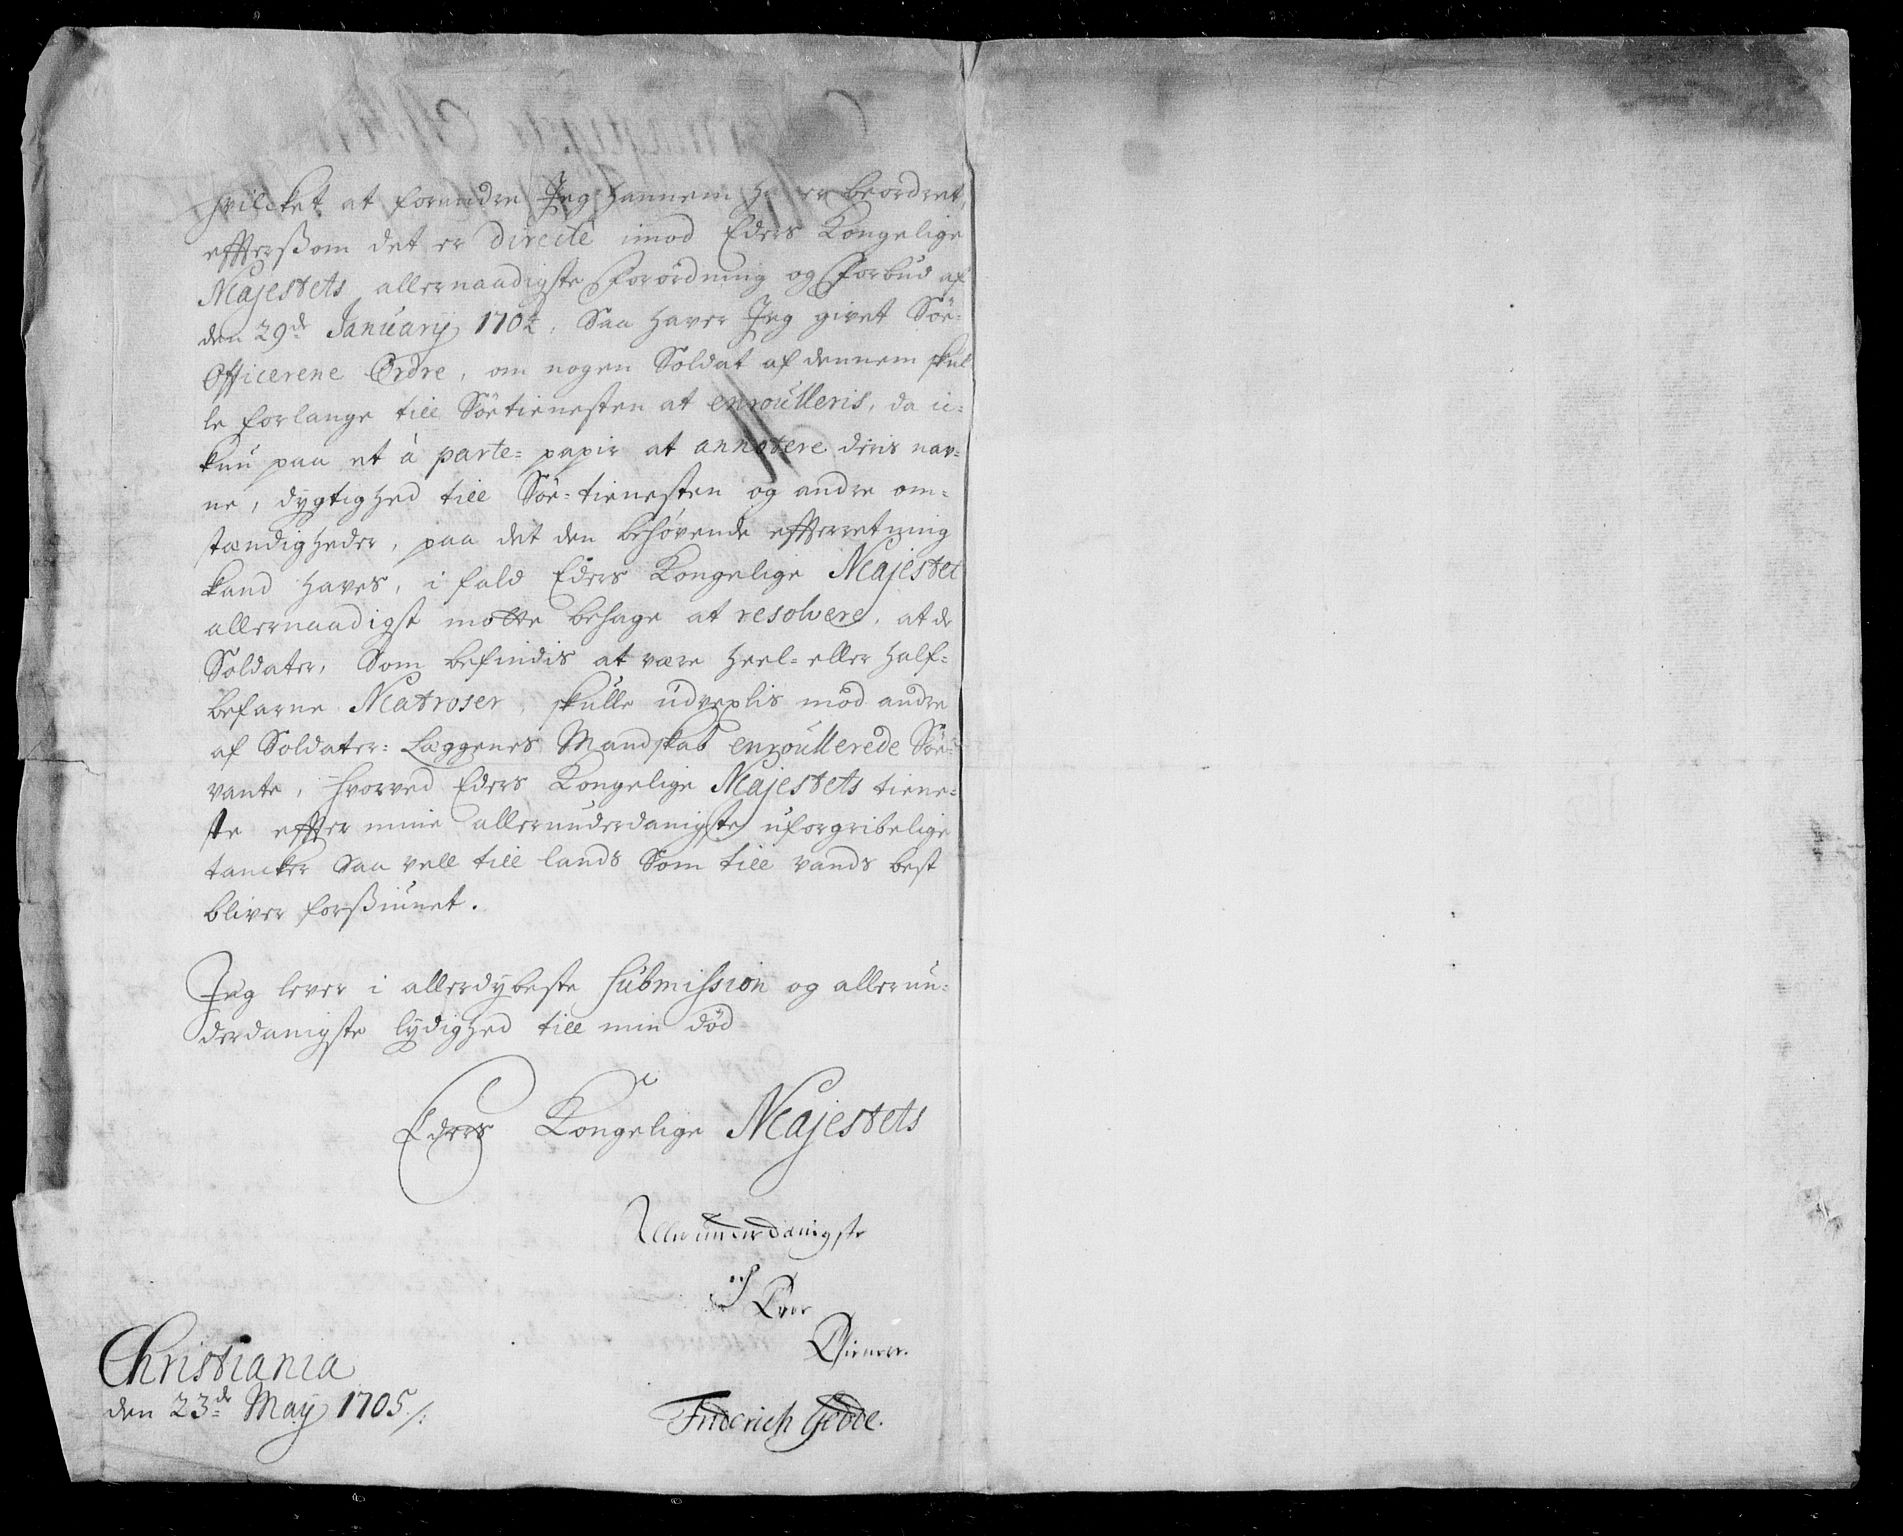 hvilcket at forandre Jeg hannem har beordret,
effterßom det er directe imod Eders Kongelige
Majestets allernaadigste Forordning og Forbud af
den 29de January 1704. Saa haver Jeg givet Söe-
Officerene Ordre, om nogen Soldat af dennem skul
le forlange till Söetienesten at enroulleris, da ic-
kun paa et à parte= papir at annotere deris nav-
ne, dygtighed till Söe-tienesten og andre om-
stændigheder, paa det den behövende effterretning
kand haves, i fald Eders Kongelige Majestet
allernaadigst motte behage at resolvere, at de
Soldater, Som befindis at være heel- eller half-
befarne Matroser, skulle udvexlis mod andre
af Soldater= Læggenes Mandskab enroullerede Söe-
vante, hvorved Eders Kongelige Majestets tiene-
ste effter mine allerunderdanigste uforgribelige
tancker saa vell till lands Som till vands best
bliver forßiunet.
Jeg lever i allerdybeste Submission og allerun-
derdanigste lydighed till min död
Eders Kongelige Majestets
Allerunderdanigste
och Troe
Tienere.
Christiania
den 23de May 1705/:
Friderich Gedde.